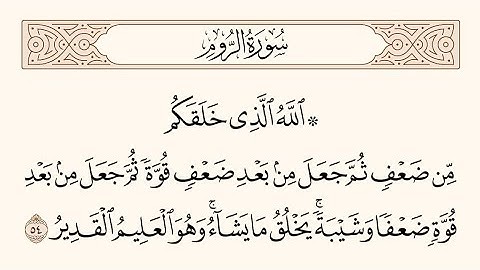 سُورَةُ الرُّومِ
۞ ٱللَّهُ ٱلَّذِى خَلَقَكُم
مِّن ضَعْفٍ ثُمَّ جَعَلَ مِنۢ بَعْدِ ضَعْفٍ قُوَّةً ثُمَّ جَعَلَ مِنۢ بَعْدِ
قُوَّةٍ ضَعْفًا وَشَيْبَةً ۚ يَخْلُقُ مَا يَشَآءُ ۚ وَهُوَ ٱلْعَلِيمُ ٱلْقَدِيرُ ٥٤